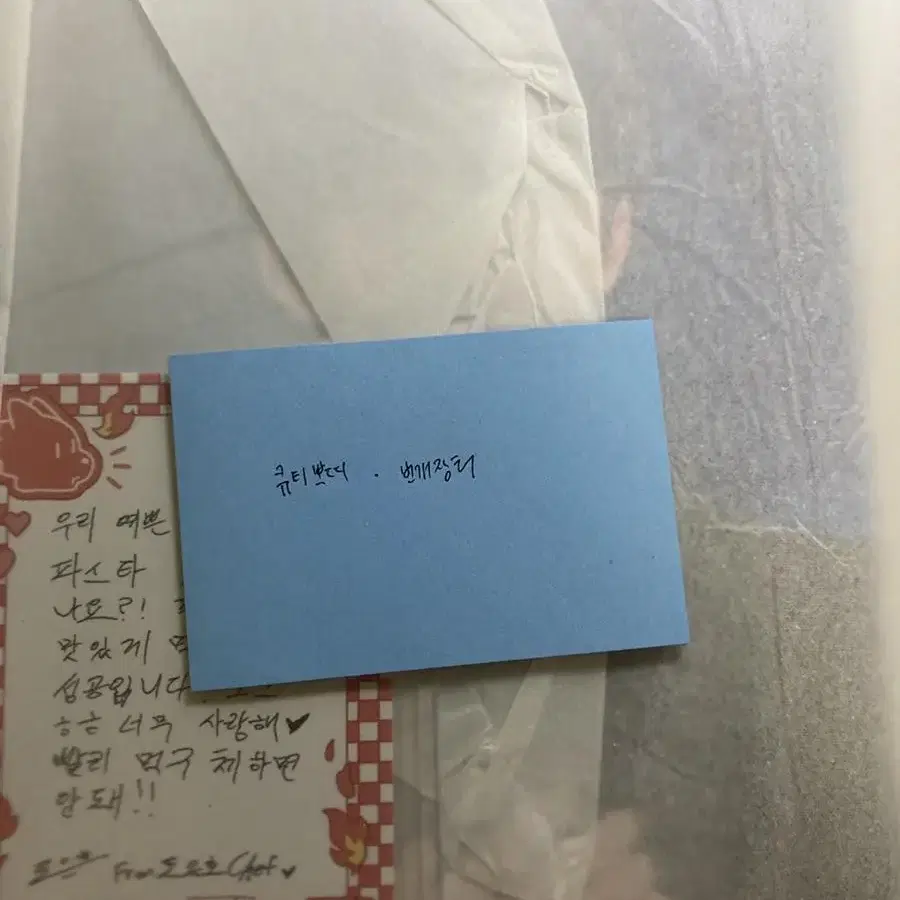 큐티쁘띠 · 번개장터
우리 예쁜
파스타
나요?!
맛있게
성공입니다
ㅎㅎ 너무 사랑해♥
빨리 먹구 체하면
안돼!!
From 도은호 Chef ♥